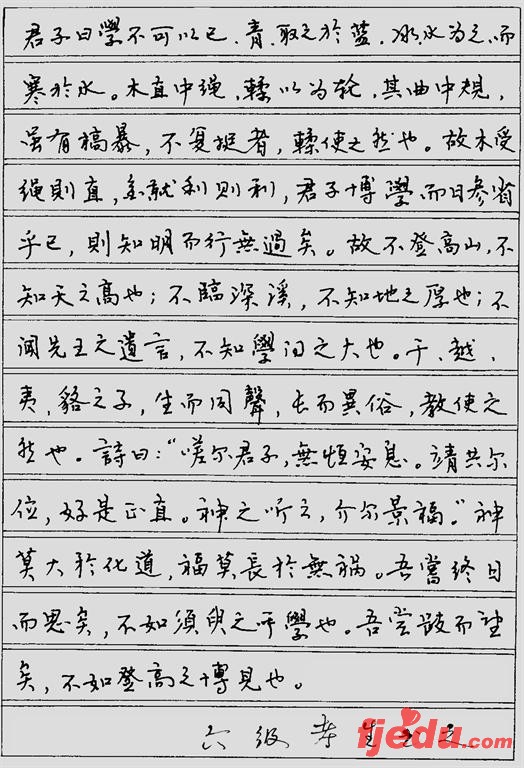 君子曰學不可以已、青、取之於蓝、冰、水為之、而
寒於水。木直中绳，輮以为轮，其曲中規，
虽有槁暴，不复挺者，輮使之然也。故木受
绳則直，金就利則利，君子博學而日参省
乎己，則知明而行無過矣。故不登高山，不
知天之高也；不臨深溪，不知地之厚也；不
闻先王之遺言，不知學问之大也。于、越、
夷、貉之子，生而同聲，长而異俗，教使之
然也。詩曰：“嗟尔君子，無恒安息。靖共尔
位，好是正直。神之听之，介尔景福。”神
莫大於化道，福莫長於無祸。吾嘗终日
而思矣，不如須臾之所學也。吾尝跂而望
矣，不如登高之博見也。
六级考生
fjedu.com